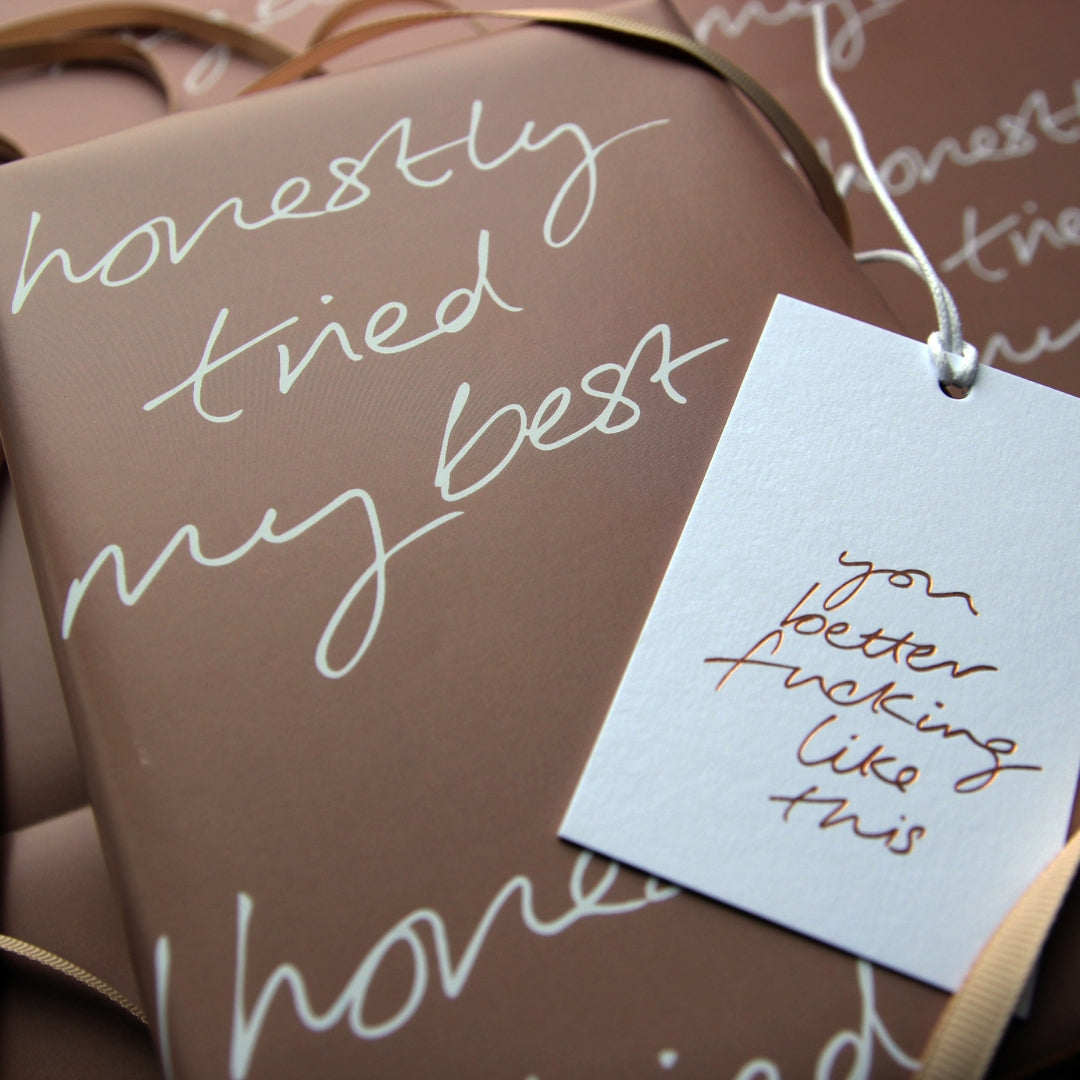 honestly
tried
my best
you
better
fucking
like
this
hone
ried
my
honestly
trie
my